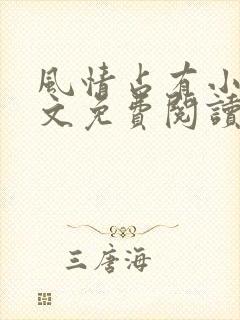 風情占有小
文免費閱讀
三唐海